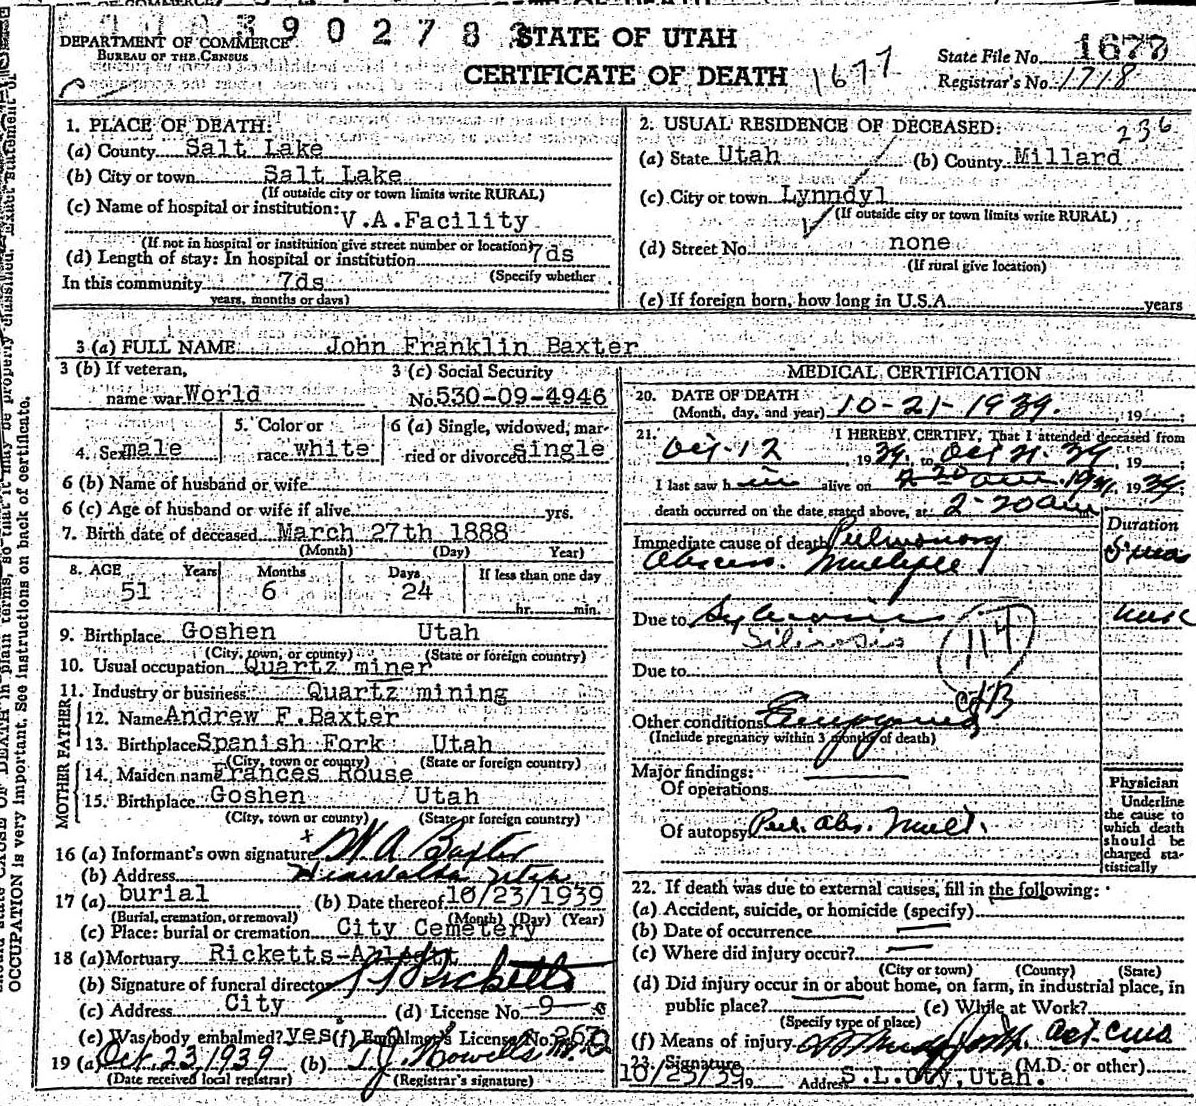 390278
DEPARTMENT OF COMMERCE
BUREAU OF THE CENSUS
STATE OF UTAH
CERTIFICATE OF DEATH 1677
State File No. 1677
Registrar's No. 1718
1. PLACE OF DEATH:
(a) County Salt Lake
(b) City or town Salt Lake
(If outside city or town limits write RURAL)
(c) Name of hospital or institution:
V.A.Facility
(If not in hospital or institution give street number or location)
(d) Length of stay: In hospital or institution 7ds
(Specify whether
In this community 7ds
years, months or days)
2. USUAL RESIDENCE OF DECEASED: 236
(a) State Utah (b) County Millard
(c) City or town Lynndyl
(If outside city or town limits write RURAL)
(d) Street No. none
(If rural give location)
(e) If foreign born, how long in U.S.A. years
3 (a) FULL NAME John Franklin Baxter
3 (b) If veteran,
name war World
3 (c) Social Security
No. 530-09-4946
4. Sex male
5. Color or
race white
6 (a) Single, widowed, mar-
ried or divorced single
6 (b) Name of husband or wife
6 (c) Age of husband or wife if alive yrs.
7. Birth date of deceased March 27th 1888
(Month) (Day) Year)
8. AGE Years Months Days If less than one day
51 6 24 hr. min.
9. Birthplace Goshen Utah
(City, town, or county) (State or foreign country)
10. Usual occupation Quartz miner
11. Industry or business Quartz mining
FATHER
12. Name Andrew F.Baxter
13. Birthplace Spanish Fork Utah
(City, town or county) (State or foreign country)
MOTHER
14. Maiden name Frances Rouse
15. Birthplace Goshen Utah
(City, town or county) (State or foreign country)
16 (a) Informant's own signature W A Baxter
(b) Address Utah
17 (a) burial (b) Date thereof 10/23/1939
(Burial, cremation, or removal) (Month) (Day) (Year)
(c) Place: burial or cremation City Cemetery
18 (a) Mortuary Ricketts-
(b) Signature of funeral director Ricketts
(c) Address City (d) License No. 9
(e) Was body embalmed? yes (f) Embalmer's License No.
19 (a) Oct. 23, 1939 (b) T.J. Howells
(Date received local registrar) (Registrar's signature)
MEDICAL CERTIFICATION
20. DATE OF DEATH
(Month, day, and year) 10-21-1939. , 19
21. I HEREBY CERTIFY, That I attended deceased from
Oct-12 , 1939, to Oct 21. 39, 19
I last saw h im alive on 1939
death occurred on the date stated above, at 2-20am
Duration
Immediate cause of death Pulmonary
Abscess. Multiple
Due to
Silicosis
114
Due to
Other conditions Empyema
(Include pregnancy within 3 months of death)
Major findings:
Of operations
Of autopsy Pul. Abs. Mult.
Physician
Underline
the cause to
which death
should be
charged sta-
tistically
22. If death was due to external causes, fill in the following:
(a) Accident, suicide, or homicide (specify)
(b) Date of occurrence
(c) Where did injury occur?
(City or town) (County) (State)
(d) Did injury occur in or about home, on farm, in industrial place, in
public place? (e) While at Work?
(Specify type of place)
(f) Means of injury
23. Signature (M.D. or other)
10/23/39 Address S.L.City,Utah.
OCCUPATION is very important. See instructions on back of certificate.